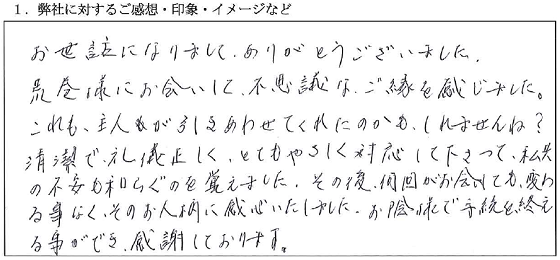 1．弊社に対するご感想・印象・イメージなど
お世話になりまして、ありがとうございました。
荒巻様にお会いして、不思議な、ご縁を感じました。
これも、主人が引きあわせてくれたのかも、しれませんね？
清潔で、礼儀正しく、とてもやさしく対応して下さって、私共
の不安も和らぐのを覚えました。その後、何回かお会いしても、変わ
る事なく、そのお人柄に感心いたしました。お陰様で手続を終え
る事ができ、感謝しております。